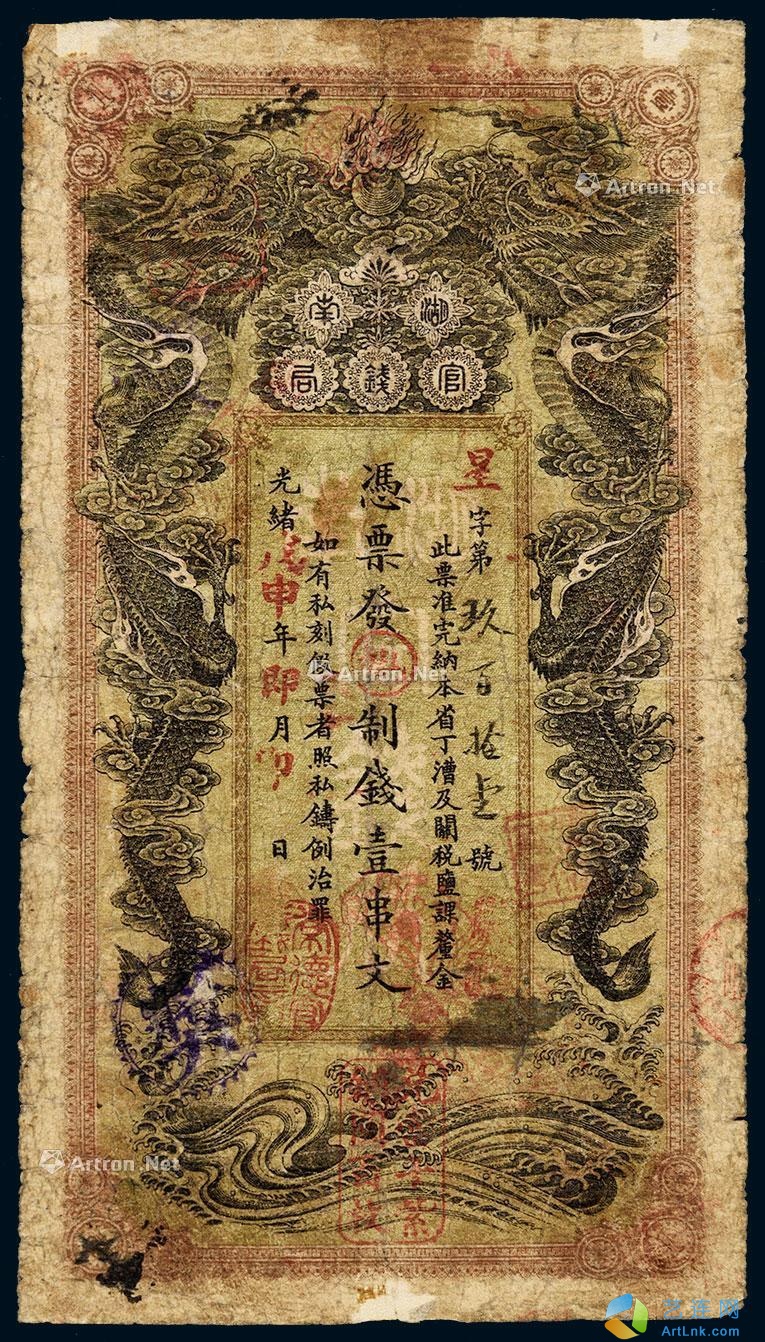 湖南
官錢局
星字第玖百拾壹號
此票准完納本省丁漕及關稅鹽課釐金
憑票發制錢壹串文
如有私刻假票者照私鑄例治罪
光緒戊申年即月日
Artron.Net
Artron.Net
Artron.Net
ArtLnk.com